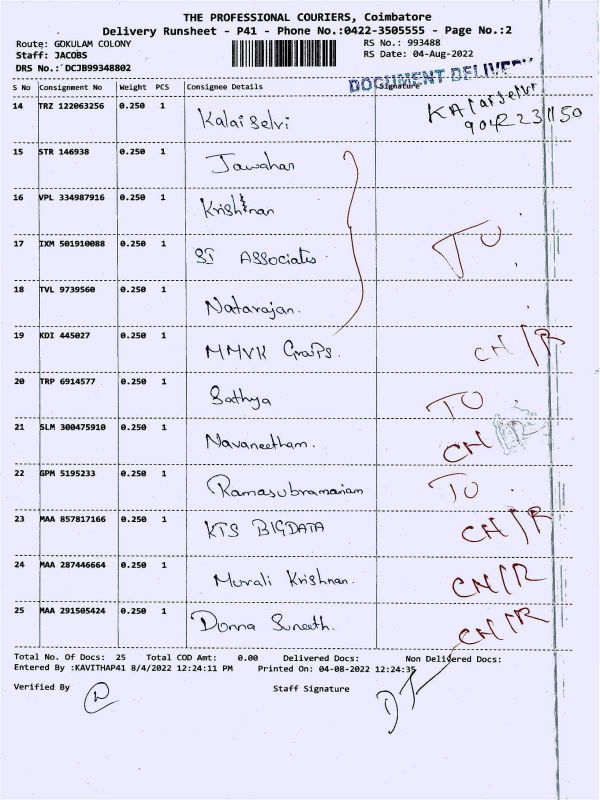 THE PROFESSIONAL COURIERS, Coimbatore
Delivery Runsheet - P41 - Phone No.:0422-3505555 - Page No.:2
Route: GOKULAM COLONY RS No.: 993488
Staff: JACOBS RS Date: 04-Aug-2022
DRS No.: DCJB99348802
DOCUMENT DELIVERY
S No Consignment No Weight PCS Consignee Details Signature
14 TRZ 122063256 0.250 1 Kalai Selvi Kalaiselvi
15 STR 146938 0.250 1 Jawahar
16 VPL 334987916 0.250 1 Krishnan
17 IXM 501910088 0.250 1 SI ASSociates. TO
18 TVL 9739560 0.250 1 Natarajan.
19 KDI 445027 0.250 1 MMVK GrouPs. CH/R
20 TRP 6914577 0.250 1 Sathya TO
21 SLM 300475910 0.250 1 Navaneetham. CH/R
22 GPM 5195233 0.250 1 Ramasubramaniam TO
23 MAA 857817166 0.250 1 KTS BIGDATA CH/R
24 MAA 287446664 0.250 1 Murali Krishnan. CH/R
25 MAA 291505424 0.250 1 Donna Suneeth. CH/R
Total No. Of Docs: 25 Total COD Amt: 0.00 Delivered Docs: Non Delivered Docs:
Entered By :KAVITHAP41 8/4/2022 12:24:11 PM Printed On: 04-08-2022 12:24:35
Verified By Staff Signature